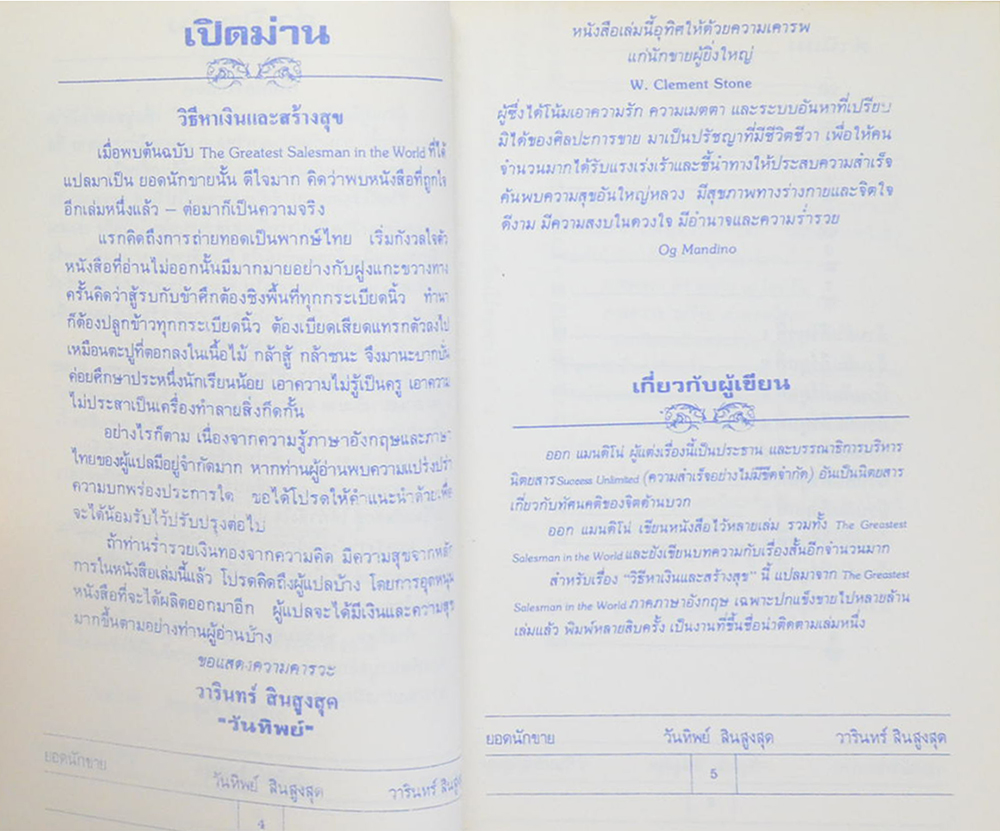 เปิดม่าน
วิธีหาเงินและสร้างสุข
เมื่อพบต้นฉบับ The Greatest Salesman in the World ที่ได้
แปลมาเป็น ยอดนักขายนั้น ดีใจมาก คิดว่าพบหนังสือที่ถูกใจ
อีกเล่มหนึ่งแล้ว – ต่อมาก็เป็นความจริง
แรกคิดถึงการถ่ายทอดเป็นพากษ์ไทย เริ่มกังวลใจตัว
หนังสือที่อ่านไม่ออกนั้นมีมากมายอย่างกับฝูงแกะขวางทาง
ครั้นคิดว่าสู้รบกับข้าศึกต้องชิงพื้นที่ทุกกระเบียดนิ้ว ทำนา
ก็ต้องปลูกข้าวทุกกระเบียดนิ้ว ต้องเบียดเสียดแทรกตัวลงไป
เหมือนตะปูที่ตอกลงในเนื้อไม้ กล้าสู้ กล้าชนะ จึงมานะบากบั่น
ค่อยศึกษาประหนึ่งนักเรียนน้อย เอาความไม่รู้เป็นครู เอาความ
ไม่ประสาเป็นเครื่องทำลายสิ่งกีดกั้น
อย่างไรก็ตาม เนื่องจากความรู้ภาษาอังกฤษและภาษา
ไทยของผู้แปลมีอยู่จำกัดมาก หากท่านผู้อ่านพบความแปร่งปร่า
ความบกพร่องประการใด ขอได้โปรดให้คำแนะนำด้วยเพื่อ
จะได้น้อมรับไว้ปรับปรุงต่อไป
ถ้าท่านร่ำรวยเงินทองจากความคิด มีความสุขจากหลัก
การในหนังสือเล่มนี้แล้ว โปรดคิดถึงผู้แปลบ้าง โดยการอุดหนุน
หนังสือที่จะได้ผลิตออกมาอีก ผู้แปลจะได้มีเงินและความสุข
มากขึ้นตามอย่างท่านผู้อ่านบ้าง
ขอแสดงความคารวะ
วารินทร์ สินสูงสุด
"วันทิพย์"
ยอดนักขาย วันทิพย์ สินสูงสุด วารินทร์ สินสูง
4
หนังสือเล่มนี้อุทิศให้ด้วยความเคารพ
แก่นักขายผู้ยิ่งใหญ่
W. Clement Stone
ผู้ซึ่งได้โน้มเอาความรัก ความเมตตา และระบบอันหาที่เปรียบ
มิได้ของศิลปะการขาย มาเป็นปรัชญาที่มีชีวิตชีวา เพื่อให้คน
จำนวนมากได้รับแรงเร่งเร้าและชี้นำทางให้ประสบความสำเร็จ
ค้นพบความสุขอันใหญ่หลวง มีสุขภาพทางร่างกายและจิตใจ
ดีงาม มีความสงบในดวงใจ มีอำนาจและความร่ำรวย
Og Mandino
เกี่ยวกับผู้เขียน
ออก แมนดิโน่ ผู้แต่งเรื่องนี้เป็นประธาน และบรรณาธิการบริหาร
นิตยสาร Success Unlimited (ความสำเร็จอย่างไม่มีขีดจำกัด) อันเป็นนิตยสาร
เกี่ยวกับทัศนคติของจิตด้านบวก
ออก แมนดิโน่ เขียนหนังสือไว้หลายเล่ม รวมทั้ง The Greastest
Salesman in the World และยังเขียนบทความกับเรื่องสั้นอีกจำนวนมาก
สำหรับเรื่อง "วิธีหาเงินและสร้างสุข" นี้ แปลมาจาก The Greastest
Salesman in the World ภาคภาษาอังกฤษ เฉพาะปกแข็งขายไปหลายล้าน
เล่มแล้ว พิมพ์หลายสิบครั้ง เป็นงานที่ขึ้นชื่อน่าติดตามเล่มหนึ่ง
ยอดนักขาย วันทิพย์ สินสูงสุด วารินทร์ สินสูงสุด
5